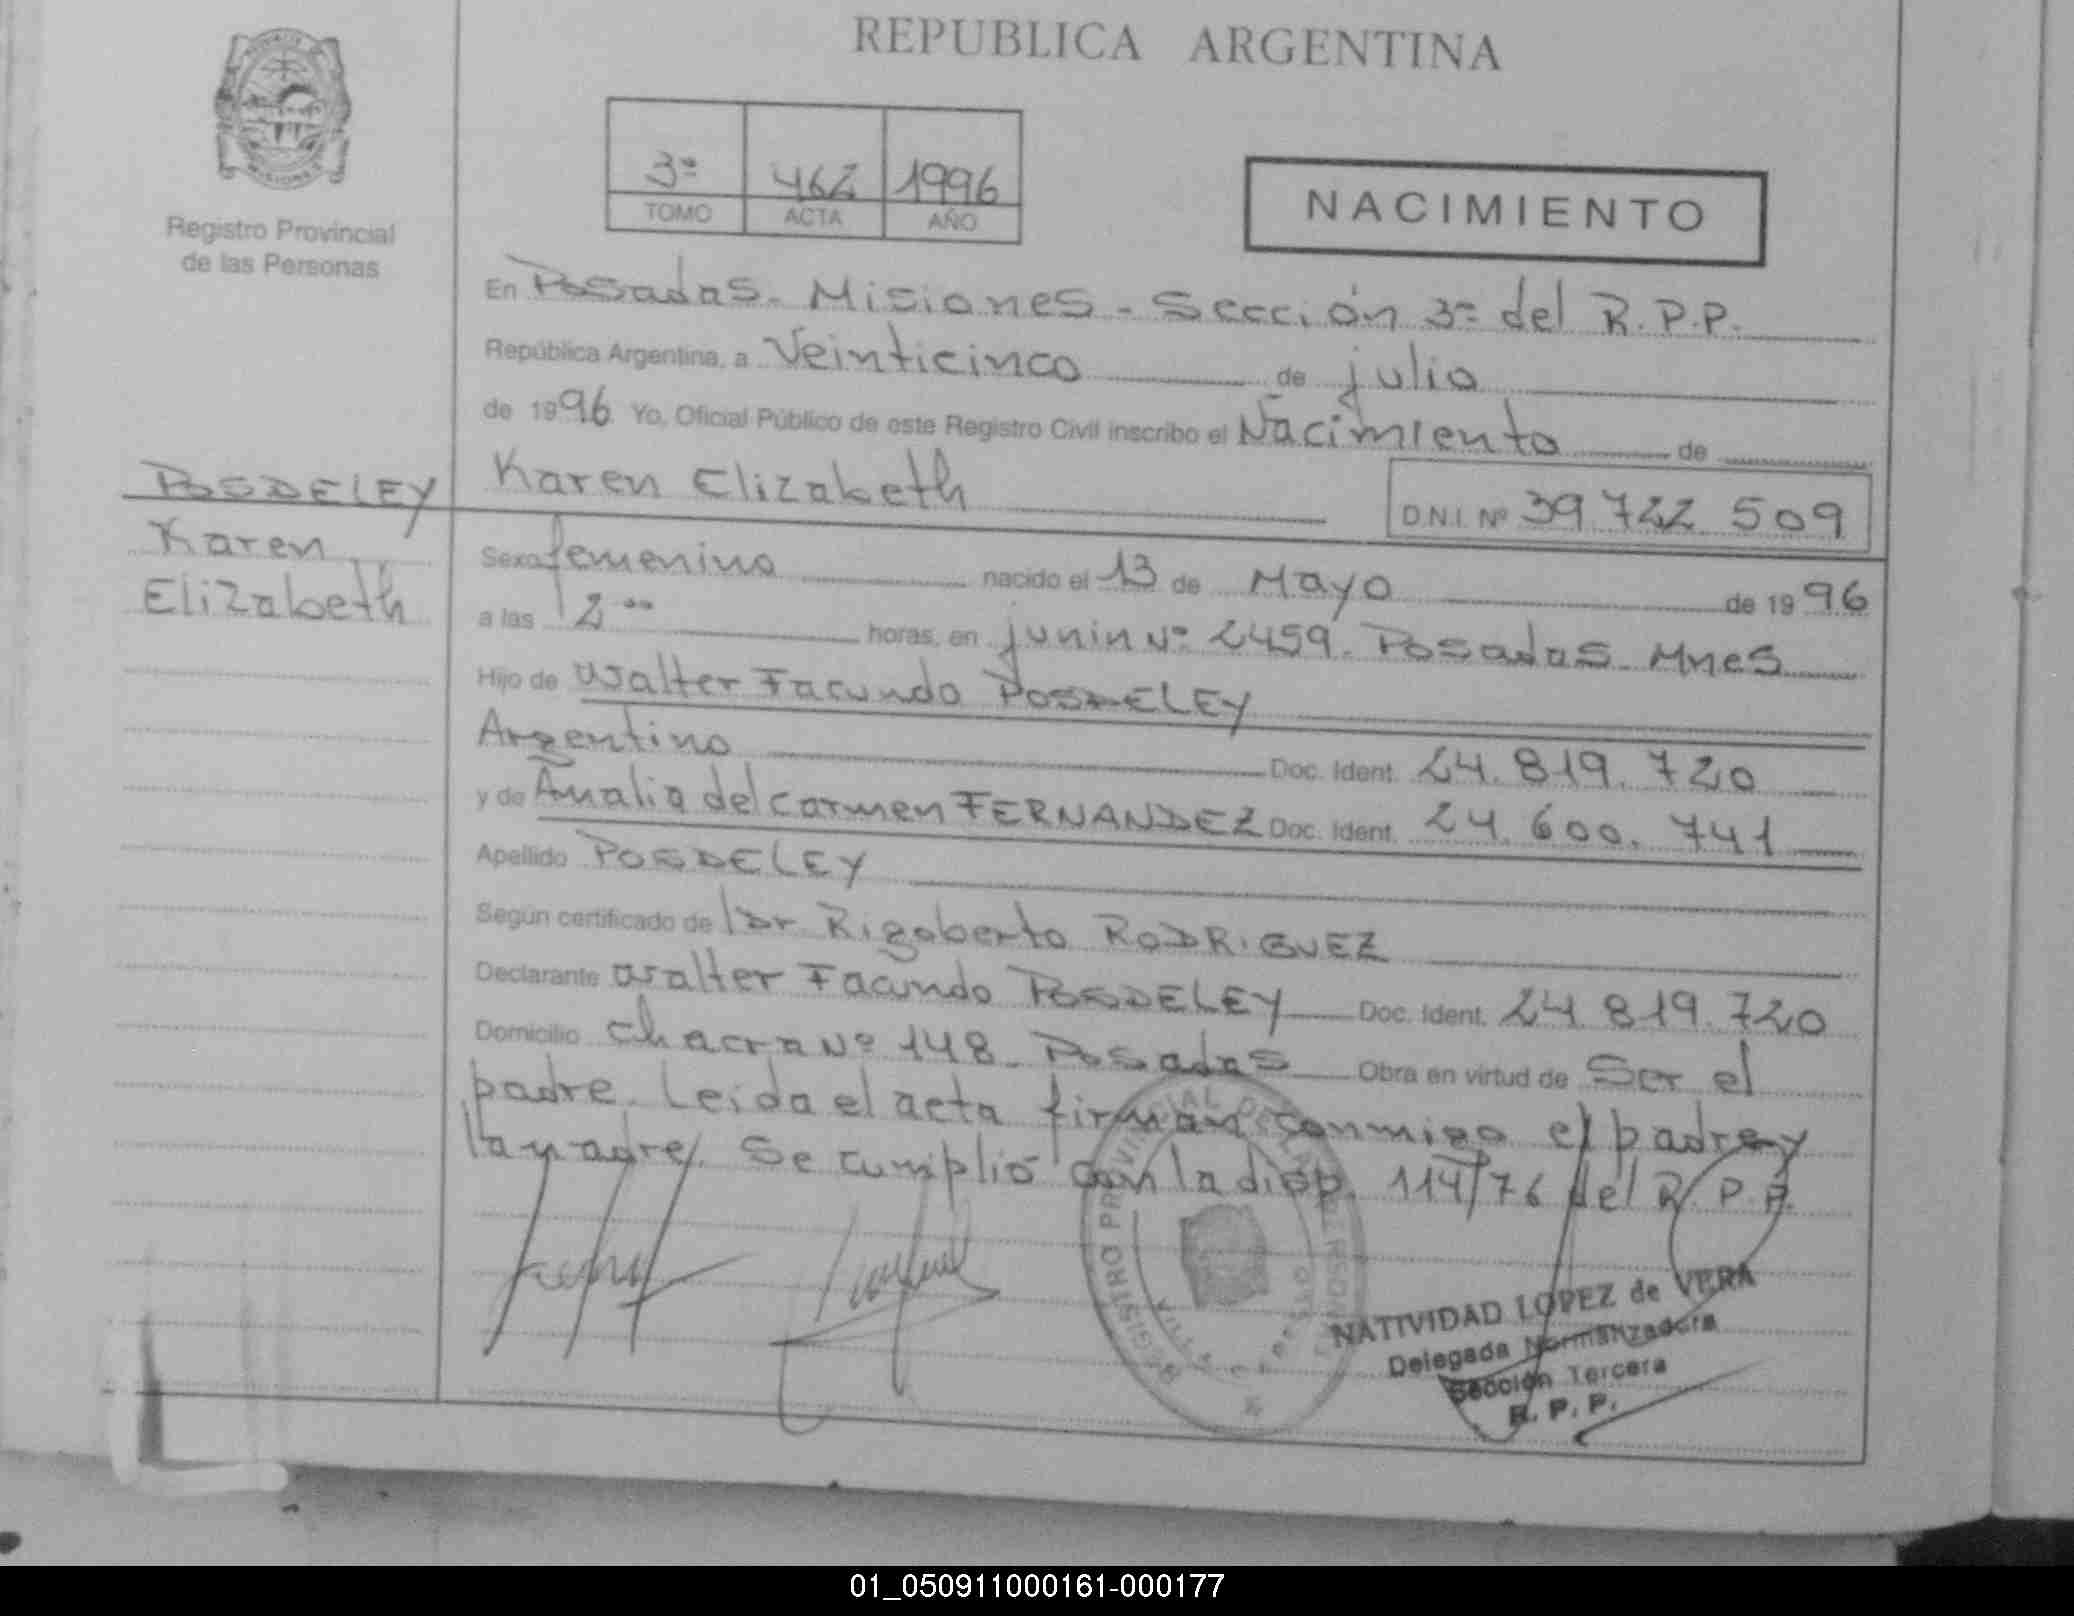 REPUBLICA ARGENTINA
Registro Provincial
de las Personas
3º 462 1996
TOMO ACTA AÑO
NACIMIENTO
En Posadas - Misiones - Sección 3º del R.P.P.
República Argentina, a Veinticinco de julio
de 1996 Yo, Oficial Público de este Registro Civil inscribo el Nacimiento de
Karen Elizabeth D.N.I. Nº 39.722.509
POSDELEY
Karen
Elizabeth
Sexo femenino nacido el 13 de Mayo de 1996
a las 2 00 horas, en junin Nº 2459. Posadas. Mnes
Hijo de Walter Facundo POSDELEY
Argentino Doc. Ident. 24.819.720
y de Analia del Carmen FERNANDEZ Doc. Ident. 24.600.741
Apellido POSDELEY
Según certificado de Dr Rigoberto RODRIGUEZ
Declarante Walter Facundo POSDELEY Doc. Ident. 24.819.720
Domicilio Chacra Nº 148. Posadas Obra en virtud de Ser el
padre. Leida el acta firman conmigo el padre y
la madre. Se cumplió con la disp. 114/76 del R.P.P.
REGISTRO PROVINCIAL DE LAS PERSONAS
NATIVIDAD LOPEZ de VERA
Delegada Normalizadora
Sección Tercera
R. P. P.
01_050911000161-000177